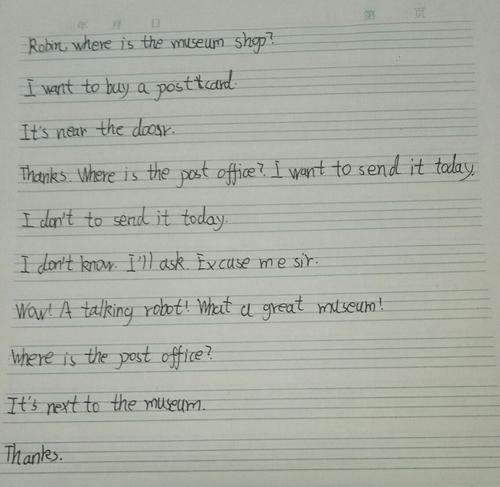 年 月 日 第 页
Robin, where is the museum shop?
I want to buy a posttcard.
It's near the doosr.
Thanks. Where is the post office? I want to send it today.
I don't to send it today.
I don't know. I'll ask. Excuse me sir.
Wow! A talking robot! What a great museum!
Where is the post office?
It's next to the museum.
Thanks.